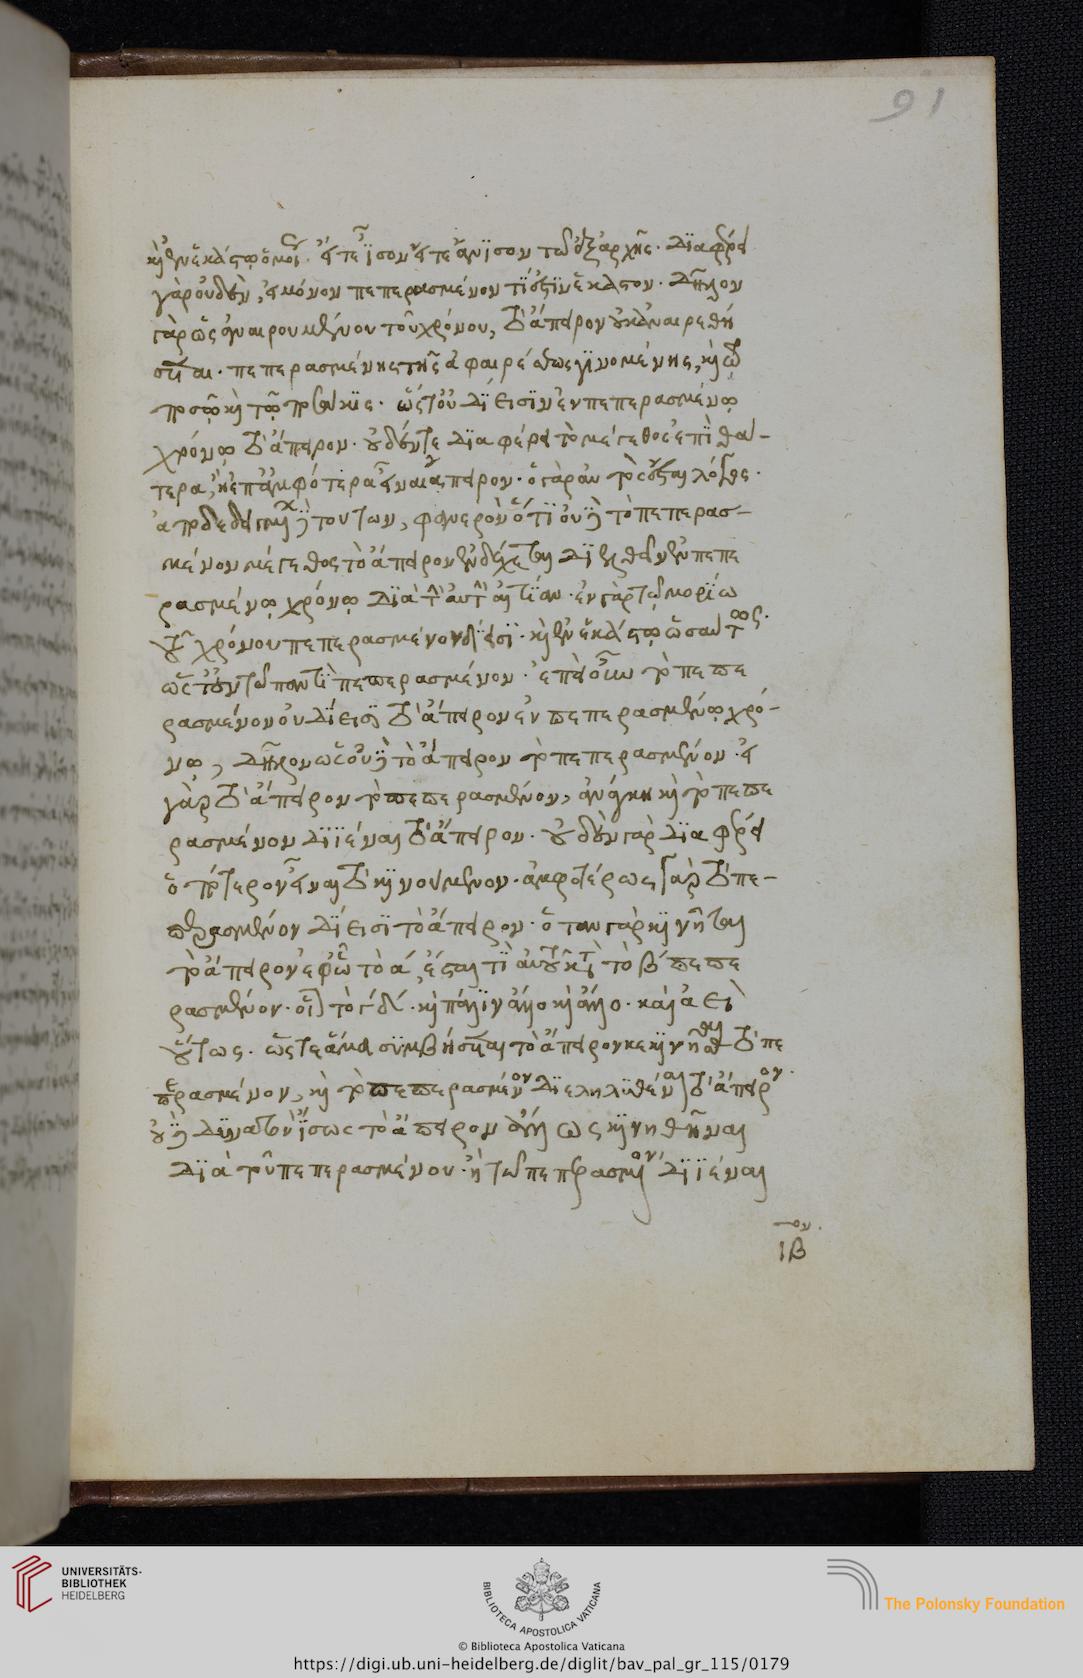 91
καὶ ἐν ἑκάστῳ ὁμοί εἴτε ἴσον εἴτε ἄνισον τῶ ἐξαρχῆς· διαφέρει
γὰρ οὐδὲν, εἰ μόνον πεπερασμένον τί ἐστιν ἕκαστον· δῆλον
γὰρ ὡς ἀναιρουμένου τοῦ χρόνου, τὸ ἄπειρον οὐκ ἀναιρεθή
σεται· πεπερασμένης τῆς ἀφαιρέσεως γινομένης, καὶ τῶ
ποσῷ καὶ τῷ ποσάκις· ὥστ' οὐ δίεισιν ἐν πεπερασμένῳ
χρόνῳ τὸ ἄπειρον· οὐδέν τε διαφέρει τὸ μέγεθος ἐπὶ θά-
τερα, ἢ ἐπ' ἀμφότερα εἶναι ἄπειρον· ὁ γὰρ αὐτὸς ἔσται λόγος·
ἀποδεδειγμένων δὲ τούτων, φανερὸν ὅτι οὐδὲ τὸ πεπερασ-
μένον μέγεθος τὸ ἄπειρον ἐνδέχεται διελθεῖν ἐν πεπε
ρασμένῳ χρόνῳ διὰ τὴν αὐτὴν αἰτίαν· ἐν γὰρ τῷ μορίῳ
τοῦ χρόνου πεπερασμένον δίεισι· καὶ ἐν ἑκάστῳ ὡσαύτως·
ὥστ' ἐν τῶ παντὶ πεπερασμένον· ἐπεὶ δὲ τὸ πεπε
ρασμένον οὐ δίεισι τὸ ἄπειρον ἐν πεπερασμένῳ χρό-
νῳ, δῆλον ὡς οὐδὲ τὸ ἄπειρον τὸ πεπερασμένον· εἰ
γὰρ τὸ ἄπειρον τὸ πεπερασμένον, ἀνάγκη καὶ τὸ πεπε
ρασμένον διϊέναι τὸ ἄπειρον· οὐδὲν γὰρ διαφέρει
ὁπότερον εἶναι τὸ κινούμενον· ἀμφοτέρως γὰρ τὸ πε-
περασμένον δίεισι τὸ ἄπειρον· ὅταν γὰρ κινῆται
τὸ ἄπειρον ἐφ' ὧ τὸ α, ἔσται τι αὐτοῦ κατὰ τὸ β πεπε
ρασμένον· οἷον τὸ γδ· καὶ πάλιν ἄλλο καὶ ἄλλο· καὶ ἀεὶ
οὕτως. ὥστε ἅμα συμβήσεται τὸ ἄπειρον κεκινῆσθαι τὸ πε
περασμένον, καὶ τὸ πεπερασμένον διεληλυθέναι τὸ ἄπειρον·
οὐδὲ δυνατὸν ἴσως τὸ ἄπειρον ἄλλως κινηθῆναι
διὰ τοῦ πεπερασμένου· ἢ τῶ πεπερασμένον διϊέναι
ιβ ον
UNIVERSITÄTS-
BIBLIOTHEK
HEIDELBERG
BIBLIOTECA APOSTOLICA VATICANA
The Polonsky Foundation
© Biblioteca Apostolica Vaticana
https://digi.ub.uni-heidelberg.de/diglit/bav_pal_gr_115/0179